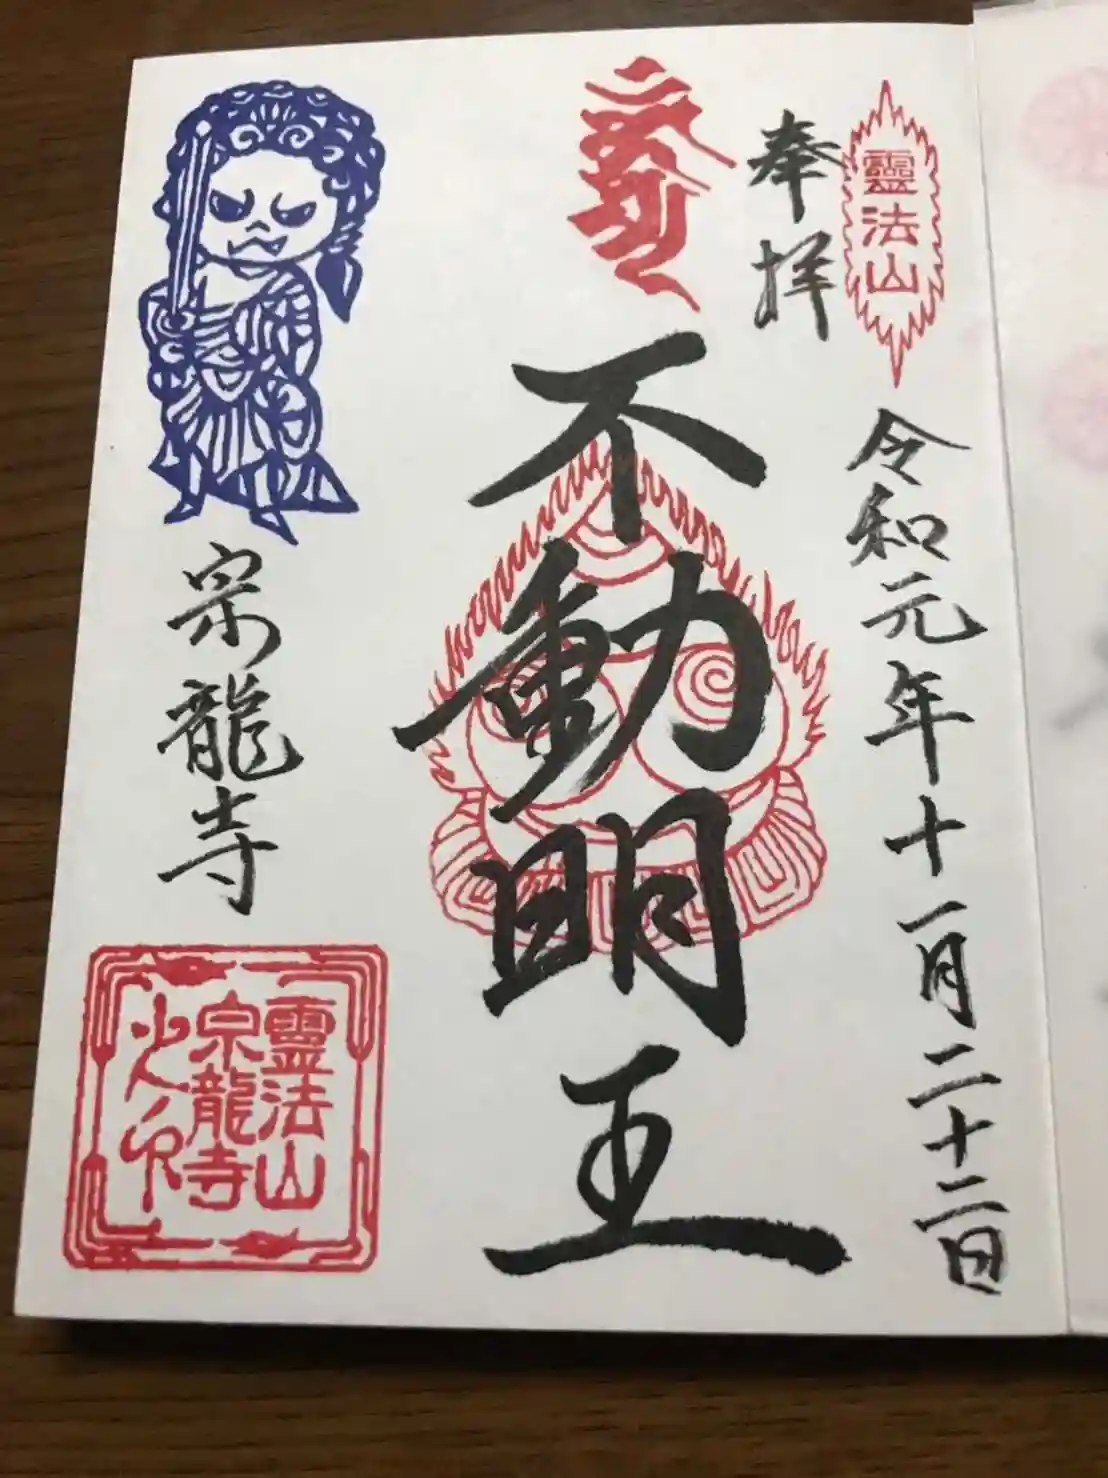 靈法山
奉拝
令和元年十一月二十二日
不動明王
宗龍寺
靈法山
宗龍寺